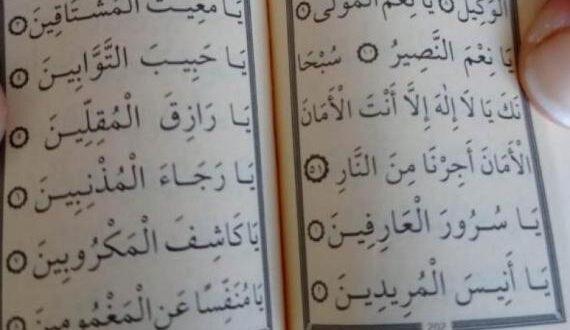 الْوَكِيلُ ۝ يَا نِعْمَ الْمَوْلَى ۝
يَا نِعْمَ النَّصِيرُ ۝ سُبْحَا
نَكَ يَا لَا إِلٰهَ إِلَّا أَنْتَ الْأَمَانَ
الْأَمَانَ أَجِرْنَا مِنَ النَّارِ
يَا سُرُورَ الْعَارِفِينَ ۝
يَا أَنِيسَ الْمُرِيدِينَ ۝
يَا مُغِيثَ الْمُشْتَاقِينَ ۝
يَا حَبِيبَ التَّوَّابِينَ ۝
يَا رَازِقَ الْمُقِلِّينَ ۝
يَا رَجَاءَ الْمُذْنِبِينَ ۝
يَا كَاشِفَ الْمَكْرُوبِينَ ۝
يَا مُنَفِّسًا عَنِ الْمَغْمُومِينَ